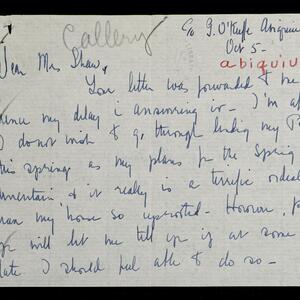 Gallery
c/o G. O'Keeffe Abiquiu
Oct 5 -
abiquiu
Dear Mrs Shaw,
Your letter was forwarded to me
hence my delay in answering it - I'm a
I do not wish to go through lending my
this spring, as my plans for the Spring
uncertain & it really is a terrific ordeal
my house so uprooted - However,
will let me tell you if at some
date I should feel able to do so -